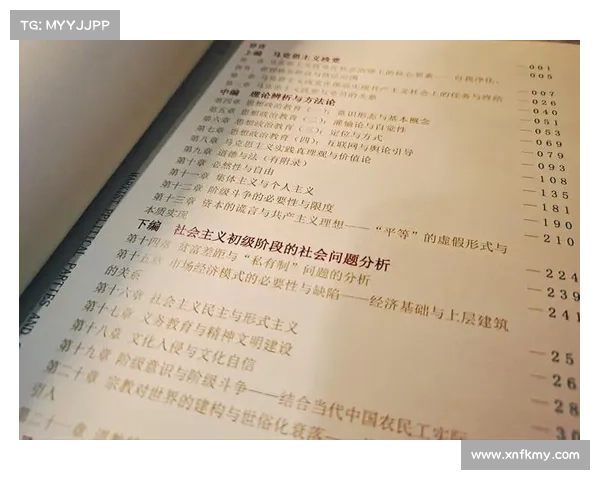 TG: MYYJJPP
导语
上编 马克思主义政党 —001
005
—007
中编 理论辨析与方法论 —026
第四章 思想政治教育(一):意识形态与基本概念 —040
第五章 思想政治教育(二):准确论与自觉性 —051
第六章 思想政治教育(三):定位与方式 —053
第七章 思想政治教育(四):互联网与舆论引导 —069
第八章 马克思主义实践真理观与价值论 —079
第九章 道德与法(有附录) —093
第十章 必然性与自由 —108
第十一章 集体主义与个人主义 —135
第十二章 阶级斗争的必要性与限度 —181
第十三章 资本的谎言与共产主义理想——“平等”的虚假形式与 —190
本质实现 —210
下编 社会主义初级阶段的社会问题分析
第十四章 贫富差距与“私有制”问题的分析 —224
第十五章 市场经济模式的必要性与缺陷——经济基础与上层建筑 —239
的关系 —241
第十六章 社会主义民主与形式主义
第十七章 义务教育与精神文明建设 —25
第十八章 文化入侵与文化自信 —26
第十九章 阶级意识与阶级斗争——结合当代中国农民工实际
第二十章 宗教对世界的建构与世俗化衰落—— —28
引入 —30
第二十一章
MARXIST POLITICAL PARTIES AND
www.xnfkmy.com